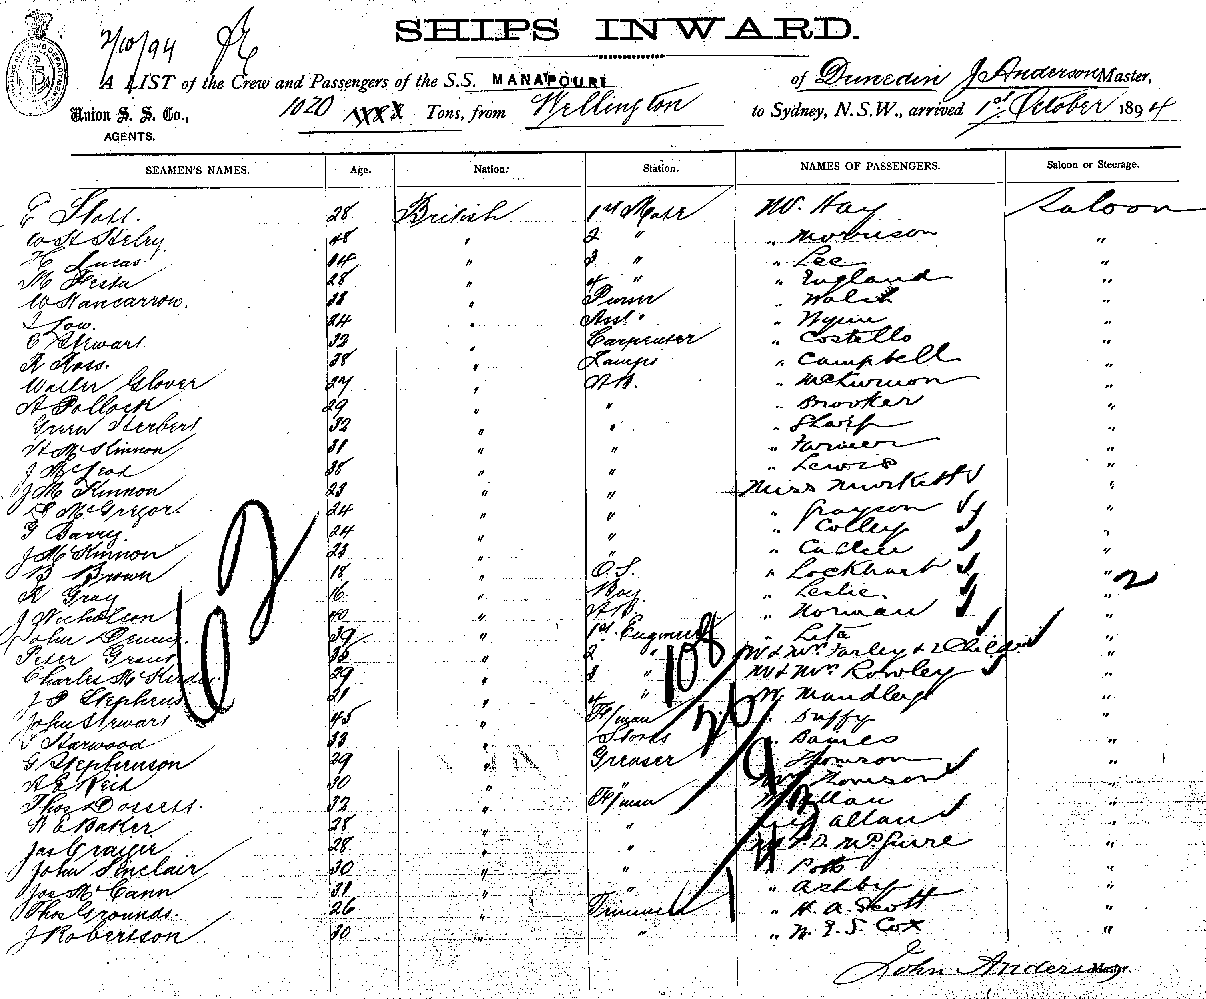 SHIPS INWARD.
2/10/94
A LIST of the Crew and Passengers of the S.S. MANAPOURI of Dunedin J. Anderson Master,
Union S. S. Co., 1020 Tons, from Wellington to Sydney, N.S.W., arrived 1st October 1894
AGENTS.
SEAMEN'S NAMES. Age. Nation. Station. NAMES OF PASSENGERS. Saloon or Steerage.
28 British 1st Mate Mr. Hay Saloon
48 " 2 " " Morrison "
Lucas 44 " 3 " " Lee "
28 " 4 " " England "
W Nancarrow. " Purser " Walsh "
Low. 24 " Asst " "
Stewart 32 " Carpenter " Costello "
R Ross. 38 " Lamps " Campbell "
Walter Glover 27 " A.B. " McKinnon "
A Pollock 29 " " " Brooker "
Herbert 32 " " " Sharp "
McKinnon 31 " " " Farmer "
J McLeod 38 " " " Lewis "
J McKinnon 23 " " Miss "
McGregor 24 " " " Grayson "
Barry 24 " " " Colley "
J McKinnon 23 " " " "
B Brown 18 " O.S. " Lockhart "
R Gray 16 " Boy " Leslie " 2
J Nicholson 40 " A.B. " Norman "
John 39 " 1st Engineer " "
Peter Grant 35 " 2 " Mr & Mrs Farley & 2 Child
Charles 29 " 3 " Mr & Mrs Rowley "
J P Stephens 21 " 4 " Mr Maudley "
John Stewart 45 " F/man " Duffy "
Harwood 33 " Stores " Barnes "
G Stephenson 29 " Greaser " Thomson "
R E Reid 30 " " Mrs Thomson "
Thos 32 " F/man Mr Allan "
A E Baker 28 " " Allan "
Jas 28 " " McGuire "
John Sinclair 30 " " " Potts "
Jos McCann 31 " " " Ashby "
Thos Grounds. 26 " Trimmer " H. A. Scott "
J Robertson 30 " " " Cox "
62
108
26
9
1
John Anderson Master.